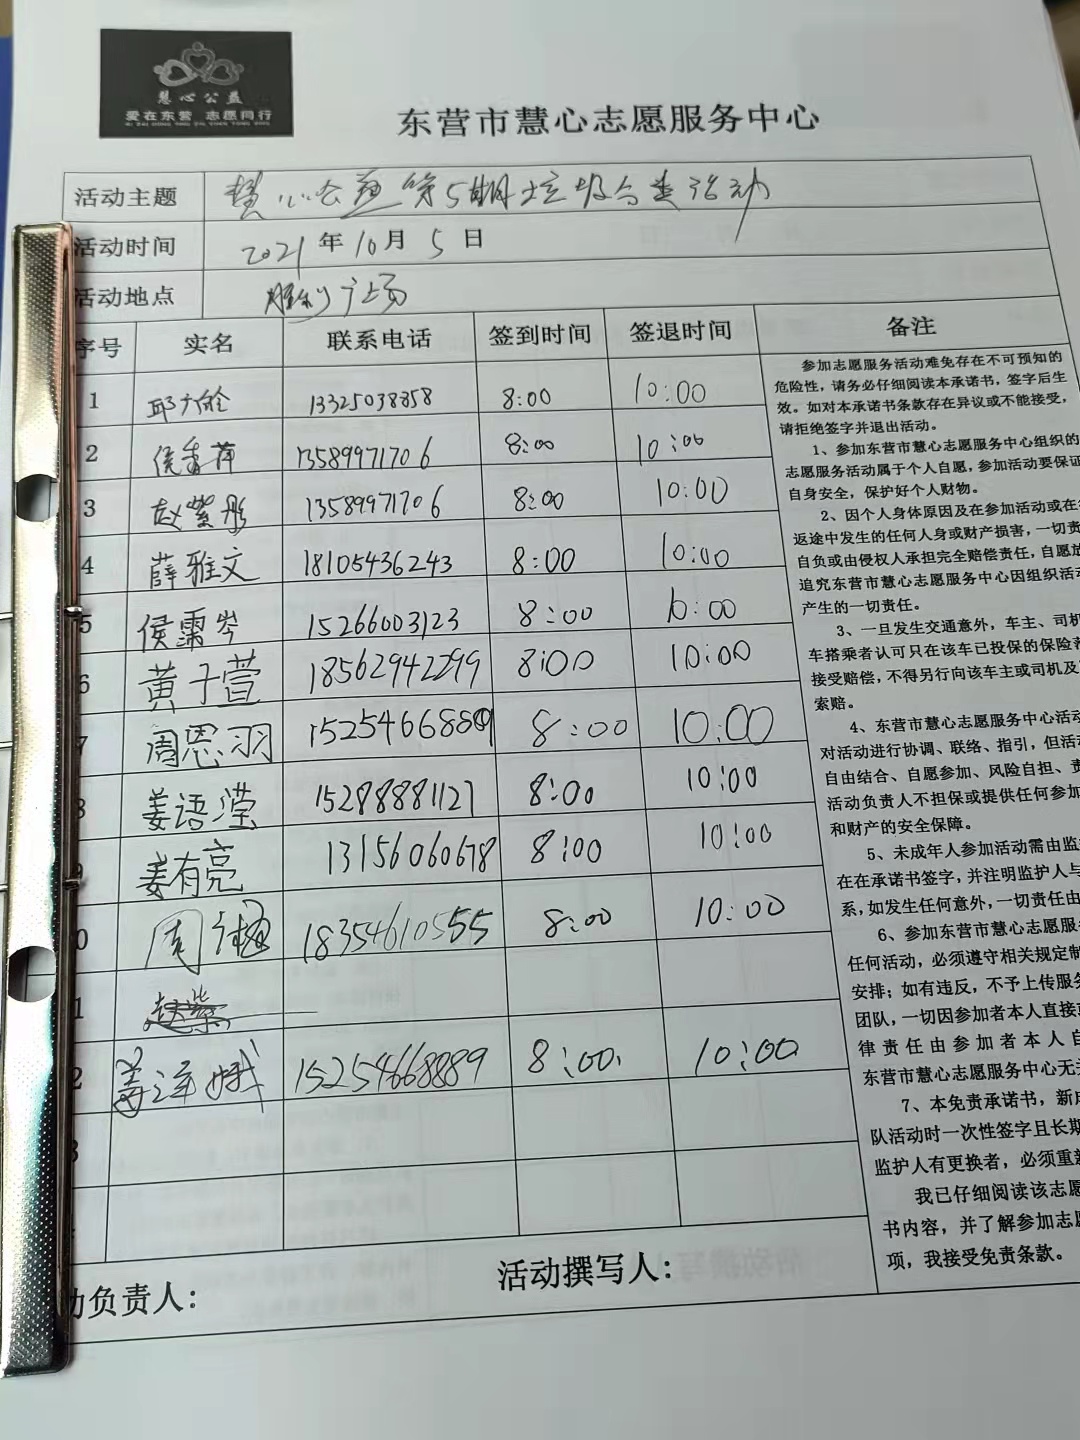 慧心公益
爱在东营 志愿同行
东营市慧心志愿服务中心
活动主题 慧心公益第5期垃圾分类活动
活动时间 2021年10月5日
活动地点 胜利广场
序号 实名 联系电话 签到时间 签退时间 备注
1 邱 13325038358 8:00 10:00
2 侯香萍 13589971706 8:00 10:00
3 赵紫彤 13589971706 8:00 10:00
4 薛雅文 18105436243 8:00 10:00
5 侯霈岑 15266003123 8:00 10:00
6 黄子萱 18562942299 8:00 10:00
7 周恩羽 152546688 8:00 10:00
8 姜语滢 15288881127 8:00 10:00
9 姜有亮 13156060678 8:00 10:00
0 周 18354610555 8:00 10:00
1 赵紫
2 姜 娥 15254668889 8:00 10:00
3
参加志愿服务活动难免存在不可预知的
危险性，请务必仔细阅读本承诺书，签字后生
效。如对本承诺书条款存在异议或不能接受，
请拒绝签字并退出活动。
1、参加东营市慧心志愿服务中心组织的
志愿服务活动属于个人自愿，参加活动要保证
自身安全，保护好个人财物。
2、因个人身体原因及在参加活动或在
返途中发生的任何人身或财产损害，一切责
自负或由侵权人承担完全赔偿责任，自愿放
追究东营市慧心志愿服务中心因组织活动
产生的一切责任。
3、一旦发生交通意外，车主、司机
车搭乘者认可只在该车已投保的保险
接受赔偿，不得另行向该车主或司机及
索赔。
4、东营市慧心志愿服务中心活动
对活动进行协调、联络、指引，但活
自由结合、自愿参加、风险自担、责
活动负责人不担保或提供任何参加
和财产的安全保障。
5、未成年人参加活动需由监
在在承诺书签字，并注明监护人与
系，如发生任何意外，一切责任由
6、参加东营市慧心志愿服
任何活动，必须遵守相关规定制
安排；如有违反，不予上传服务
团队，一切因参加者本人直接或
律责任由参加者本人自
东营市慧心志愿服务中心无
7、本免责承诺书，新
队活动时一次性签字且长期
监护人有更换者，必须重新
我已仔细阅读该志愿
书内容，并了解参加志愿
项，我接受免责条款。
动负责人： 活动撰写人：